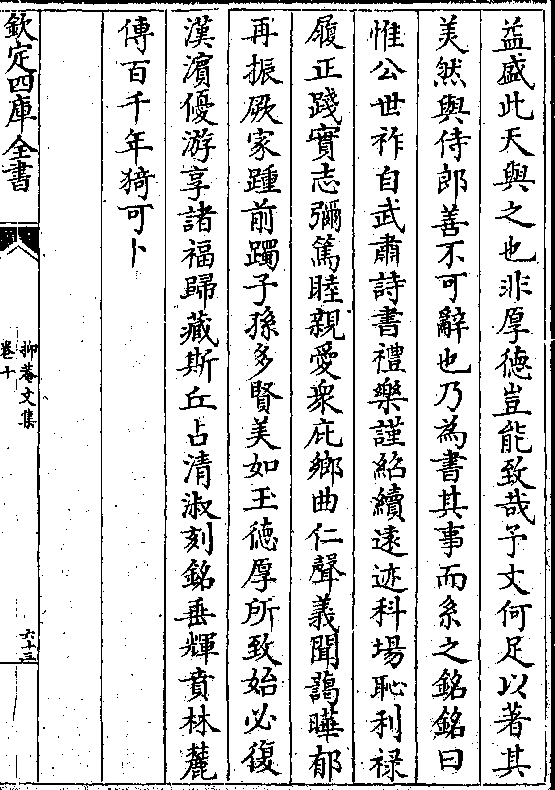 益盛此天與之也非厚德豈能致哉予文何足以著其
美然與侍郎善不可辭也乃為書其事而系之銘銘曰
惟公世祚自武肅詩書禮樂謹紹續逺迹科場恥利禄
履正踐實志彌篤睦親愛衆庇鄉曲仁聲義聞藹曄郁
再振厥家踵前躅子孫多賢美如玉徳厚所致始必復
漢濵優游享諸福歸藏斯丘占清淑刻銘垂輝賁林麓
傳百千年猗可卜
欽定四庫全書
抑菴文集
卷十
六十三